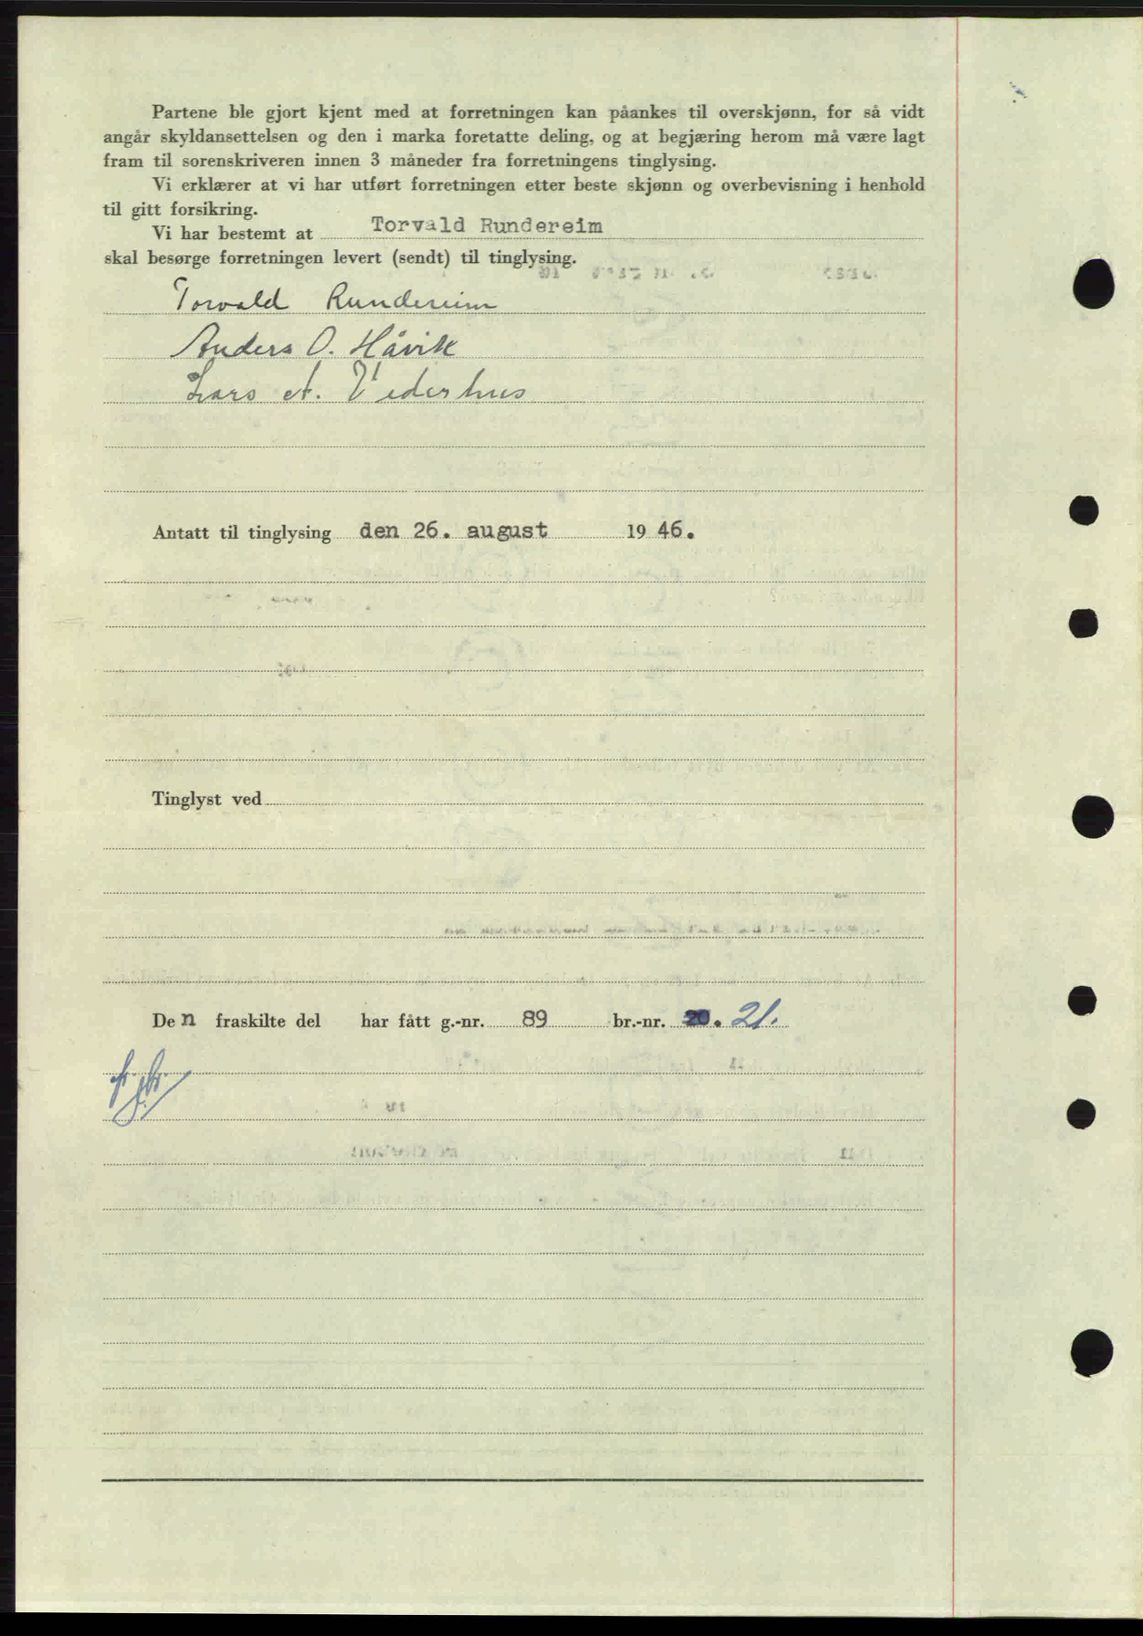 Partene ble gjort kjent med at forretningen kan påankes til overskjønn, for så vidt
angår skyldansettelsen og den i marka foretatte deling, og at begjæring herom må være lagt
fram til sorenskriveren innen 3 måneder fra forretningens tinglysing.
Vi erklærer at vi har utført forretningen etter beste skjønn og overbevisning i henhold
til gitt forsikring.
Vi har bestemt at Torvald Rundereim
skal besørge forretningen levert (sendt) til tinglysing.
Torvald Rundereim
Anders O. Håvik
Lars A. Vederhus
Antatt til tinglysing den 26. august 1946.
Tinglyst ved
Den fraskilte del har fått g.-nr. 89 br.-nr. 20. 21.